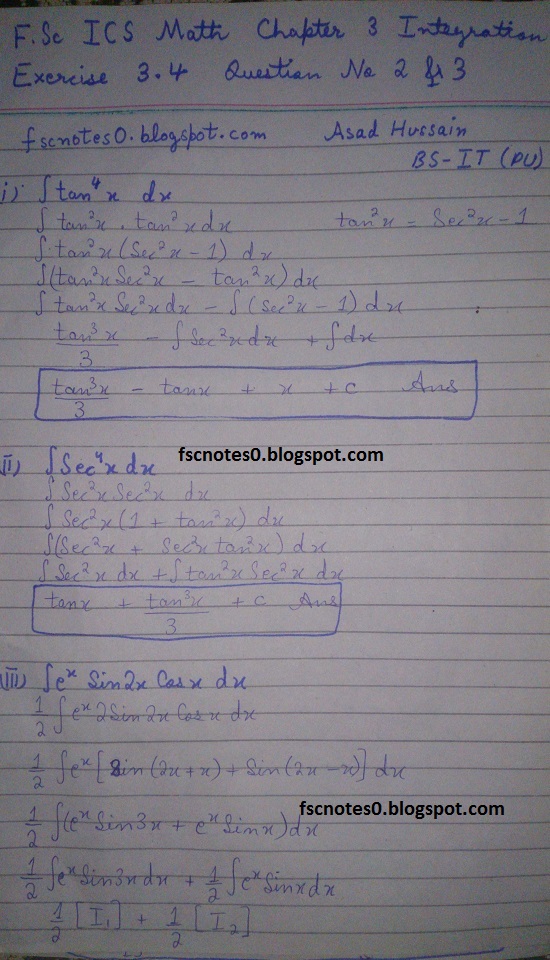 F.Sc ICS Math Chapter 3 Integration
Exercise 3.4 Question No 2 & 3
fscnotes0.blogspot.com Asad Hussain
BS-IT (PU)
i) ∫tan⁴x dx
∫ tan²x . tan²x dx tan²x = Sec²x - 1
∫ tan²x (Sec²x - 1) dx
∫(tan²x Sec²x - tan²x) dx
∫ tan²x Sec²x dx - ∫ (Sec²x - 1) dx
tan³x/3 - ∫ Sec²x dx + ∫ dx
tan³x/3 - tanx + x + c Ans
fscnotes0.blogspot.com
ii) ∫Sec⁴x dx
∫Sec²x Sec²x dx
∫ Sec²x (1 + tan²x) dx
∫(Sec²x + Sec²x tan²x) dx
∫ Sec²x dx + ∫ tan²x Sec²x dx
tanx + tan³x/3 + c Ans
iii) ∫eˣ Sin2x Cosx dx
1/2 ∫ eˣ 2Sin2x Cosx dx
1/2 ∫eˣ [Sin(2x+x) + Sin(2x-x)] dx
fscnotes0.blogspot.com
1/2 ∫(eˣ Sin3x + eˣ Sinx) dx
1/2 ∫eˣ Sin3x dx + 1/2 ∫eˣ Sinx dx
1/2 [I₁] + 1/2 [I₂]